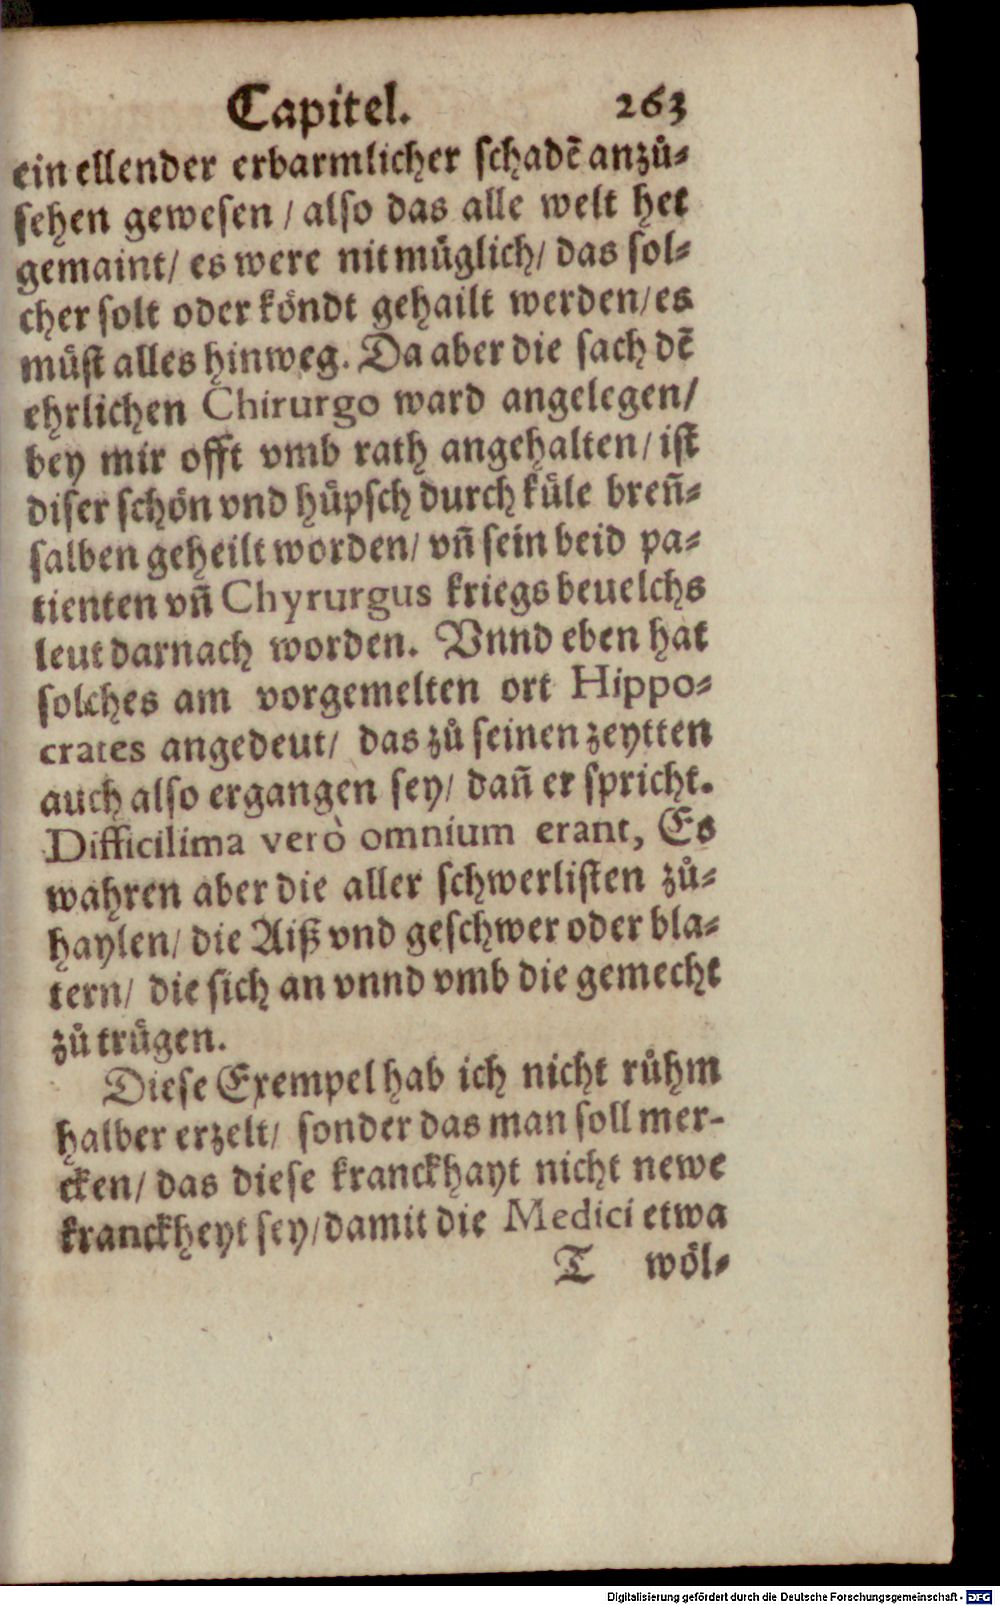 Capitel. 263
ein ellender erbarmlicher schadẽ anzů⸗
sehen gewesen / also das alle welt het
gemaint / es were nit müglich / das sol⸗
cher solt oder köndt gehailt werden / es
müst alles hinweg. Da aber die sach dẽ
ehrlichen Chirurgo ward angelegen /
bey mir offt vmb rath angehalten / ist
diser schön vnd hüpsch durch küle breñ⸗
salben geheilt worden / vñ sein beid pa⸗
tienten vñ Chyrurgus kriegs beuelchs
leut darnach worden. Vnnd eben hat
solches am vorgemelten ort Hippo⸗
crates angedeut / das zů seinen zeytten
auch also ergangen sey / dañ er spricht.
Difficilima verò omnium erant, Es
wahren aber die aller schwerlisten zů⸗
haylen / die Aiß vnd geschwer oder bla⸗
tern / die sich an vnnd vmb die gemecht
zů trügen.
Diese Exempel hab ich nicht růhm
halber erzelt / sonder das man soll mer-
cken / das diese kranckhayt nicht newe
kranckheyt sey / damit die Medici etwa
T wöl⸗
Digitalisierung gefördert durch die Deutsche Forschungsgemeinschaft - DFG